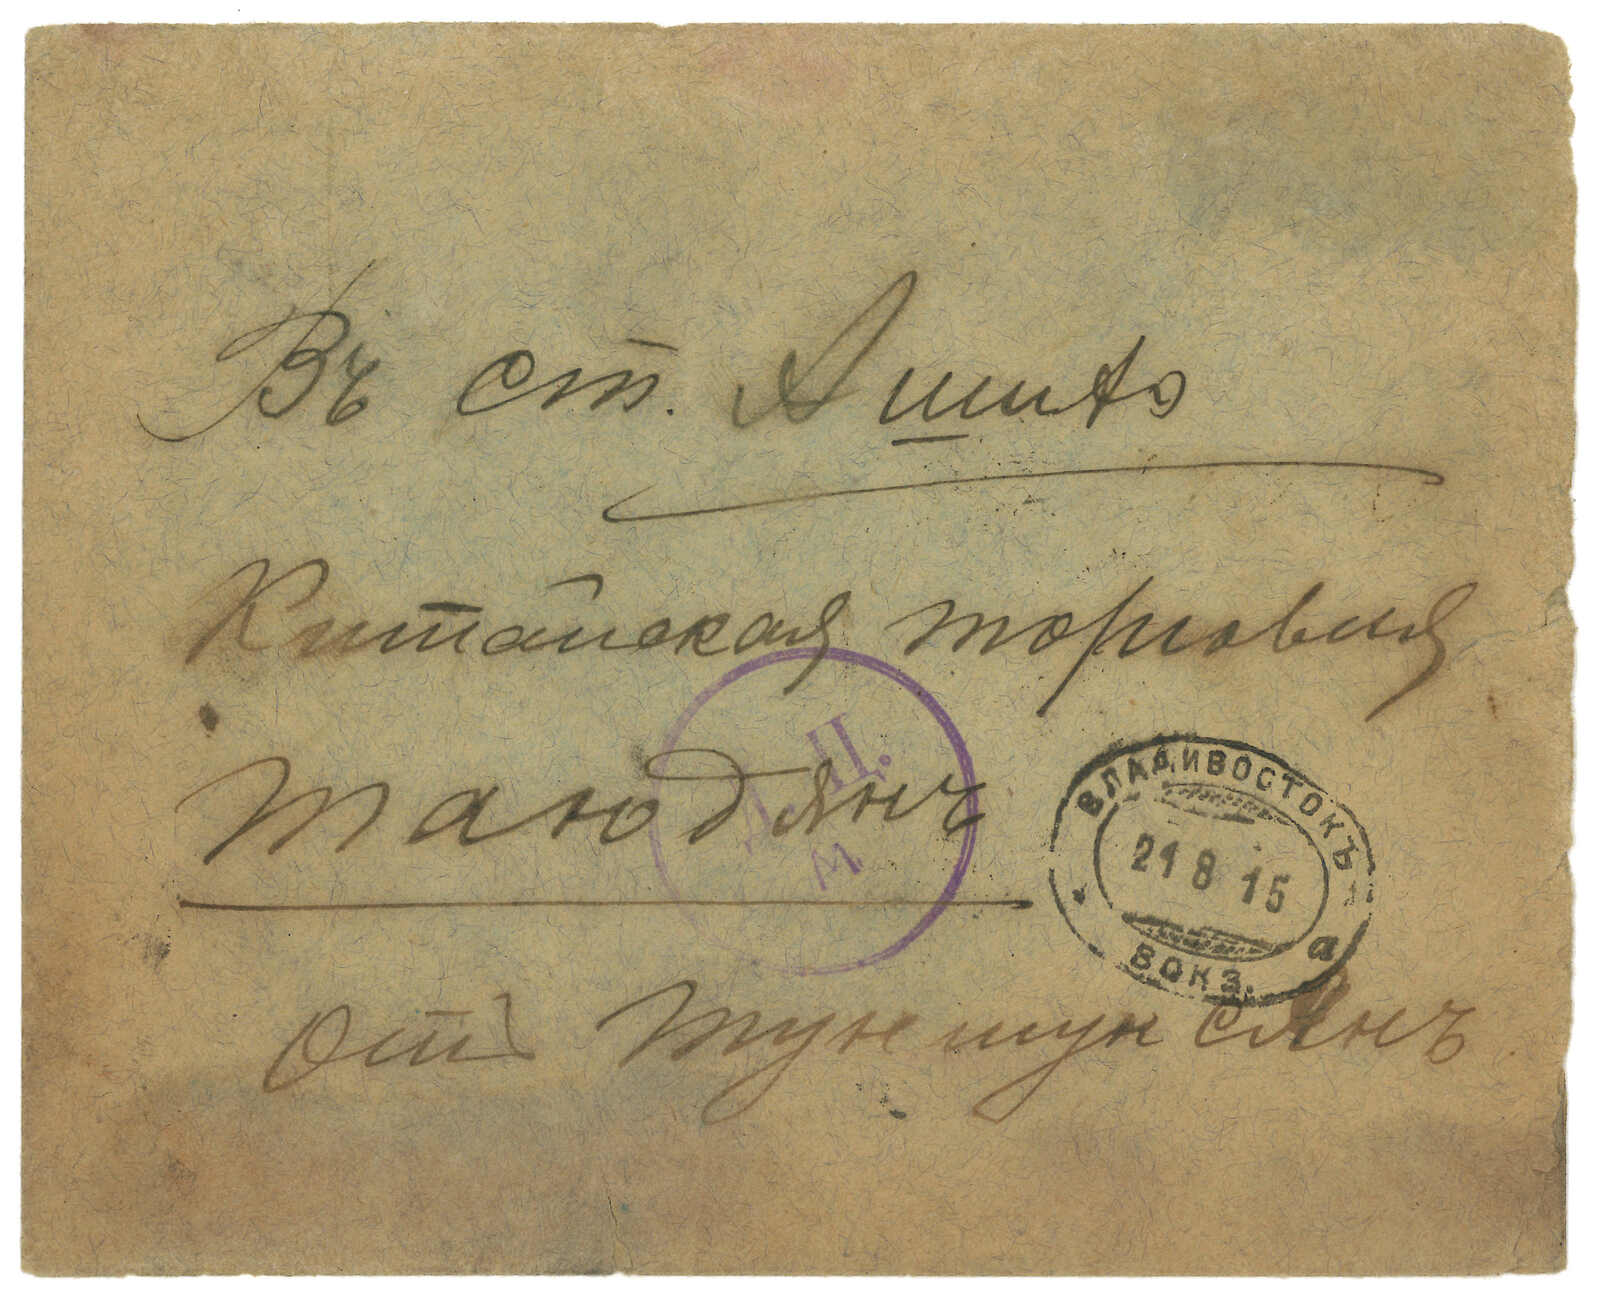 Въ ст. Ашихэ
Китайская торговля
Таюдянъ
Д. Ц.
М
ВЛАДИВОСТОКЪ
21 8 15
а
ВОКЗ.
отъ Туншунсянъ